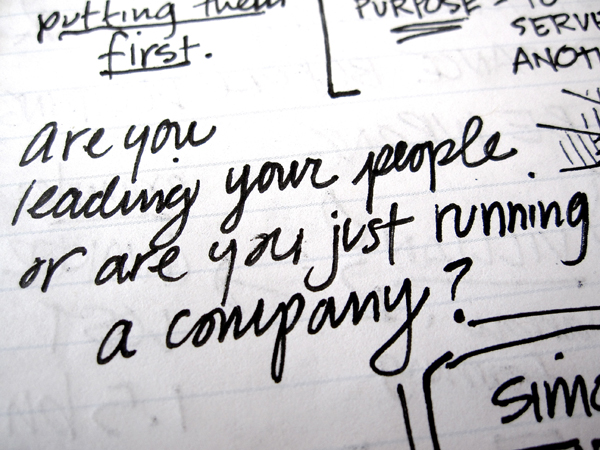 putting them
first.
PURPOSE - TO
SERVE
are you
leading your people
or are you just running
a company?